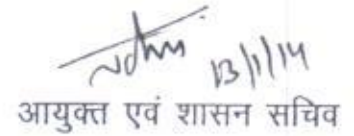 13/1/14
आयुक्त एवं शासन सचिव